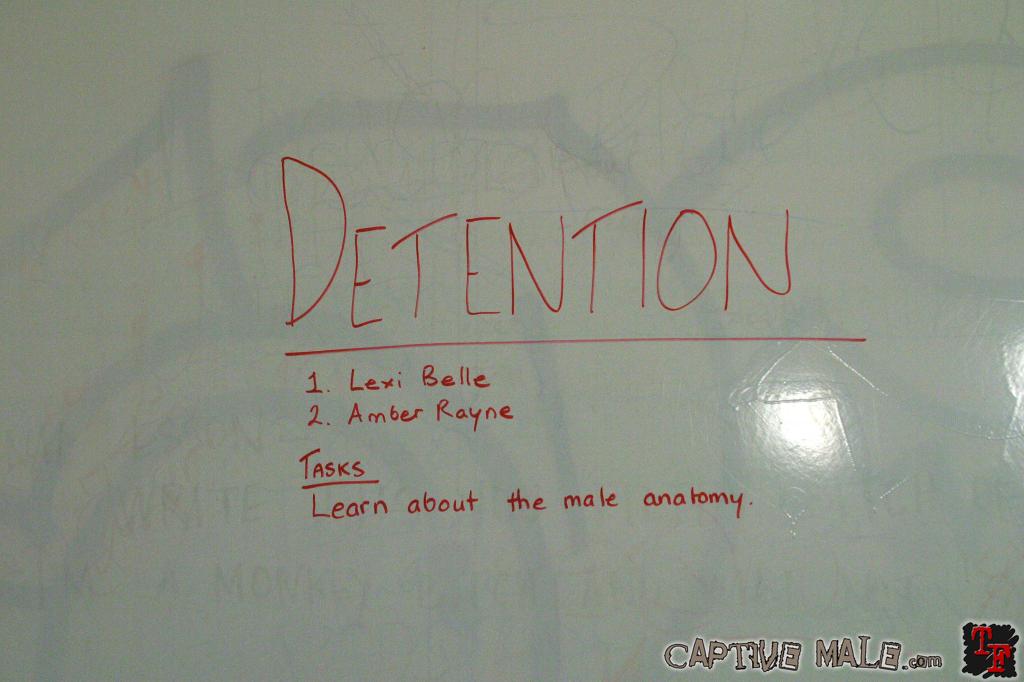 DETENTION
1. Lexi Belle
2. Amber Rayne
TASKS
Learn about the male anatomy.
WRITE
A MONKEY
CAPTIVE MALE.com
TF